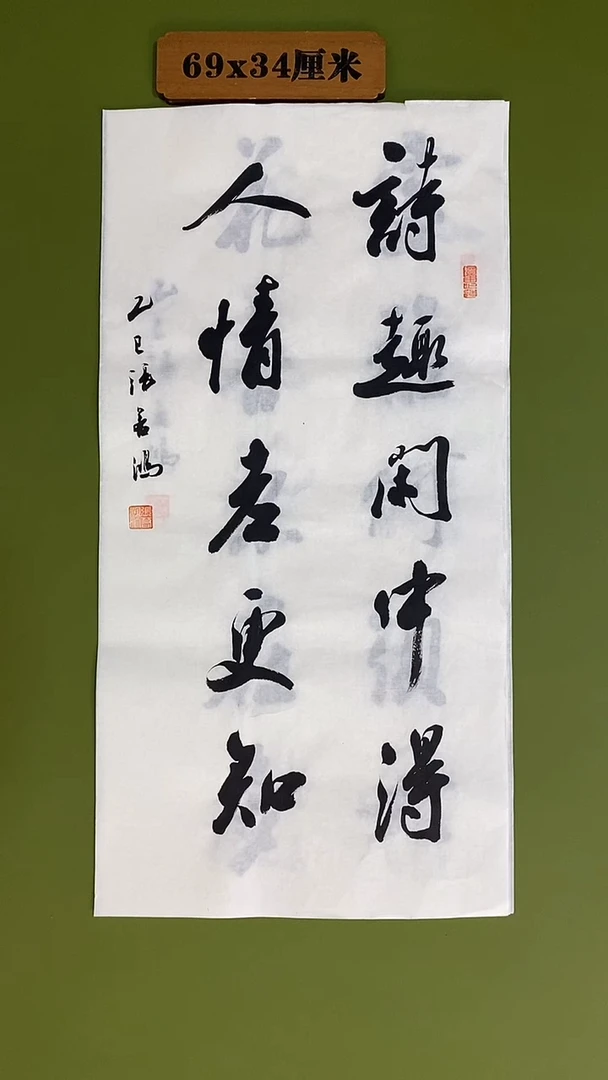 69x34厘米
詩趣閑中得
人情老更知
乙巳張善鴻